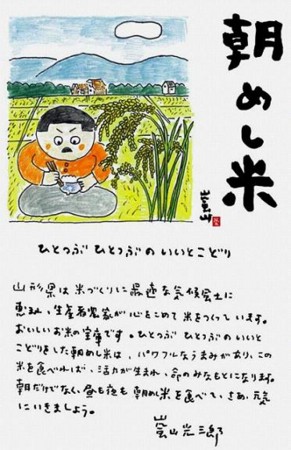 朝めし米
ひとつぶ ひとつぶの いいとこどり
山形県は 米づくりに 最適な 気候風土に
恵まれ、生産者農家が 心をこめて 米をつくっています。
おいしいお米の宝庫です。ひとつぶ ひとつぶの いいと
こどりをした 朝めし米は、パワフルな うまみがあり、この
米を食べれば、活力が生まれ、命の みなもとになります。
朝だけでなく、昼も夜も 朝めし米を食べて、さあ、元気
にいきましょう。